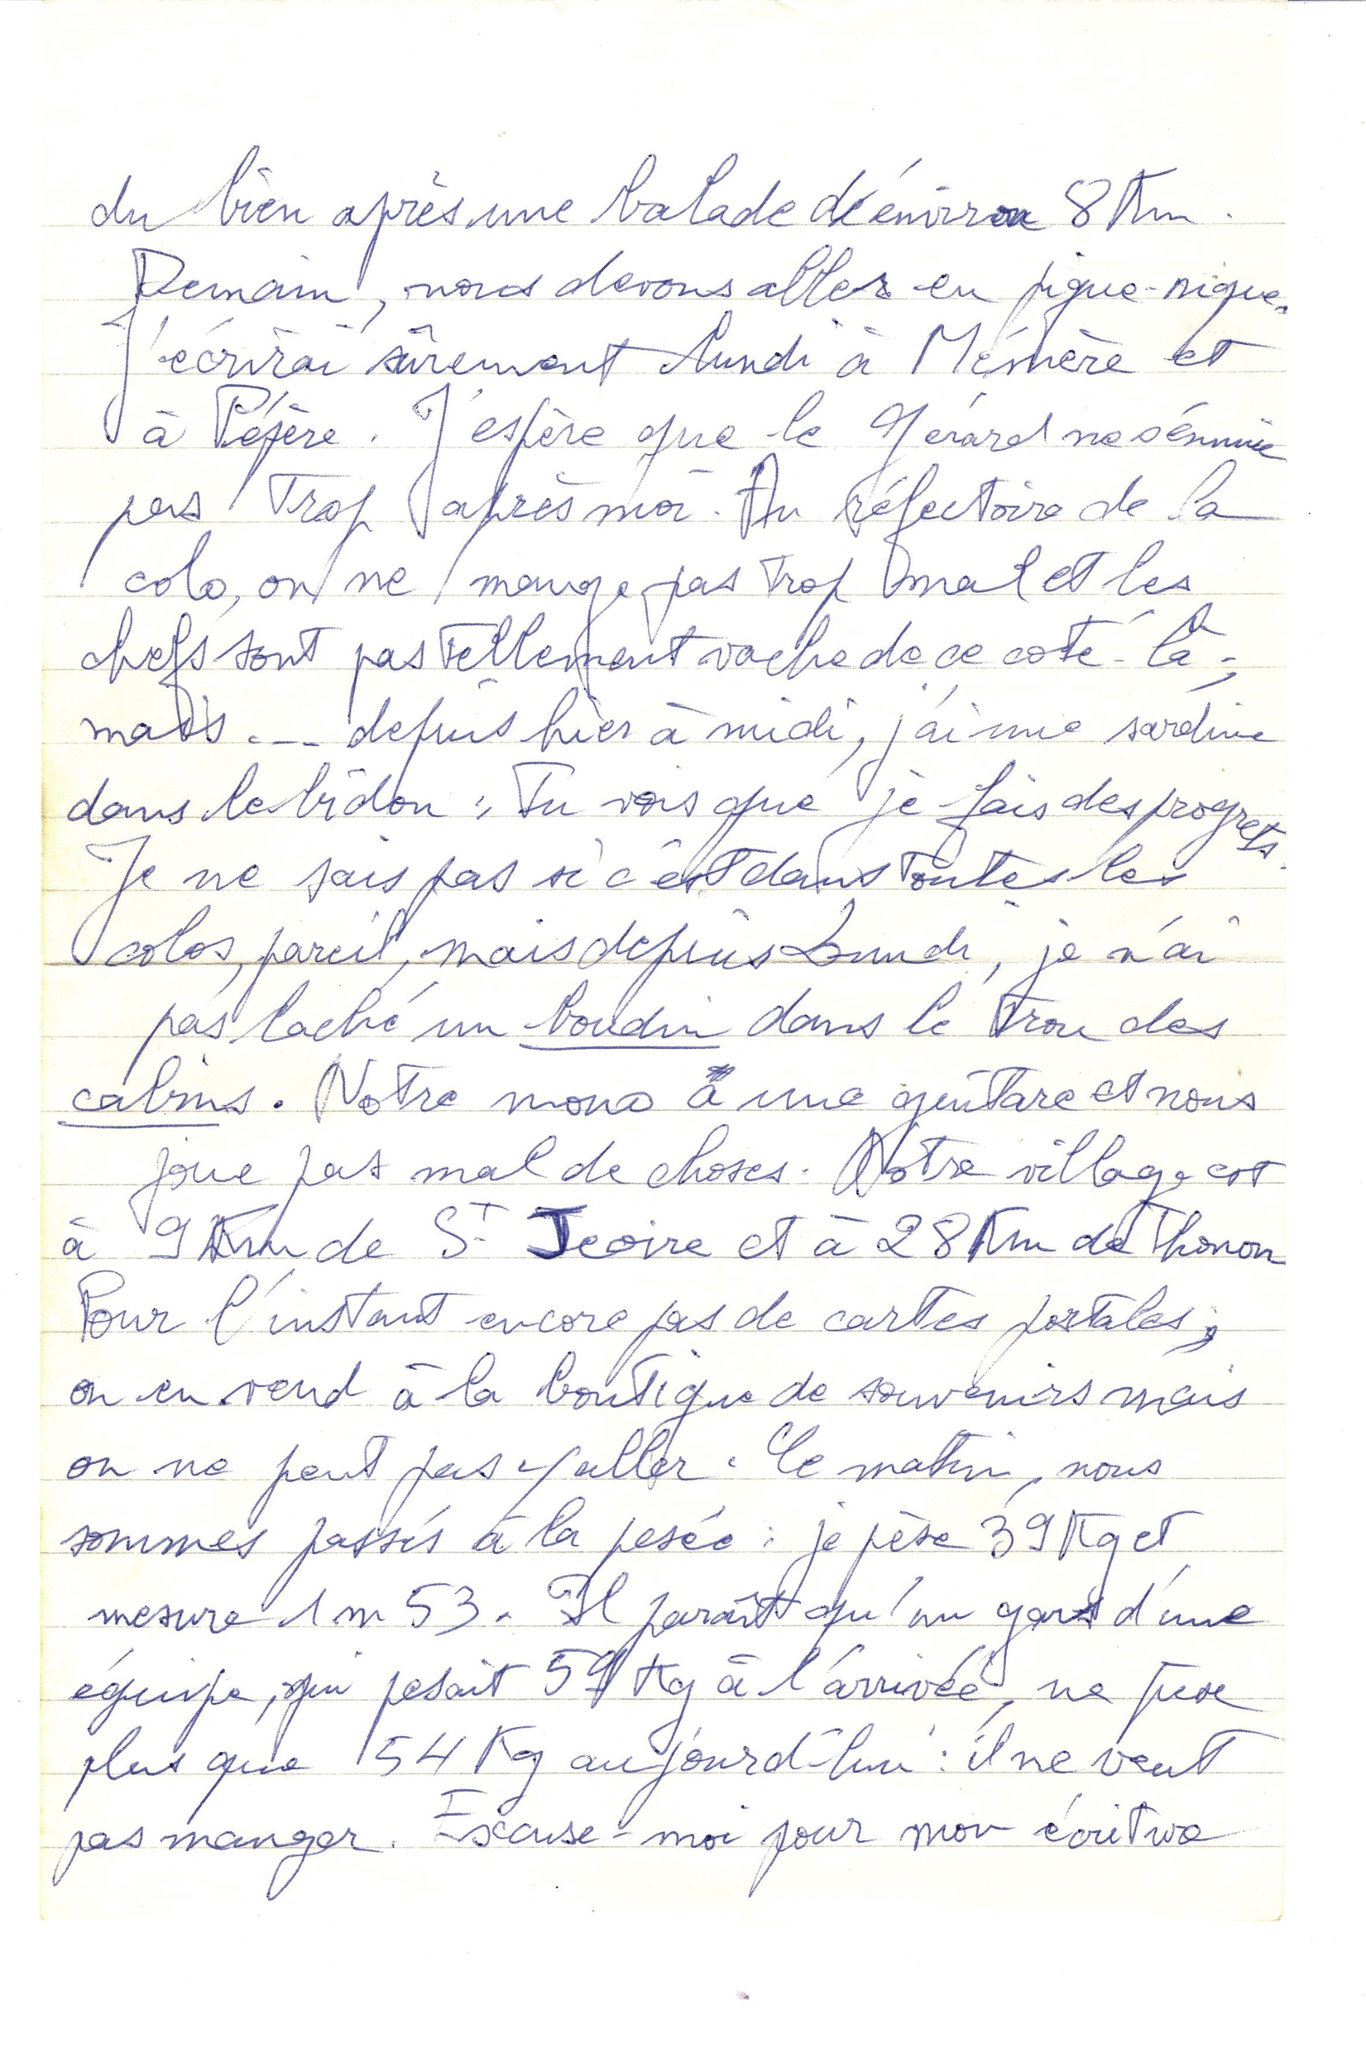 du bien après une balade d'environ 8 Km.
Demain, nous devons aller en pique-nique.
J'écrirai sûrement lundi à Mémère et
à Pépère. J'espère que le Gérard ne s'ennuie
pas trop après moi. Au réfectoire de la
colo, on ne mange pas trop mal et les
chefs sont pas tellement vache de ce coté-là ;
mais --- depuis hier à midi, j'ai une sardine
dans le bidon ; Tu vois que je fais des progrets.
Je ne sais pas si c'est dans toutes les
colos, pareil, mais depuis Lundi, je n'ai
pas laché un boudin dans le trou des
cabins. Notre mono a une guitare et nous
joue pas mal de choses. Notre village est
à 9 Km de St Jeoire et à 28 Km de Thonon
Pour l'instant encore pas de cartes postales ;
on en vend à la boutique de souvenirs mais
on ne peut pas y aller. Ce matin, nous
sommes passés à la pesée : je pèse 39 Kg et
mesure 1 m 53. Il paraît qu'un gars d'une
équipe, qui pesait 59 Kg à l'arrivée, ne pèse
plus que 54 Kg aujourd'hui : il ne veut
pas manger. Excuse-moi pour mon écriture